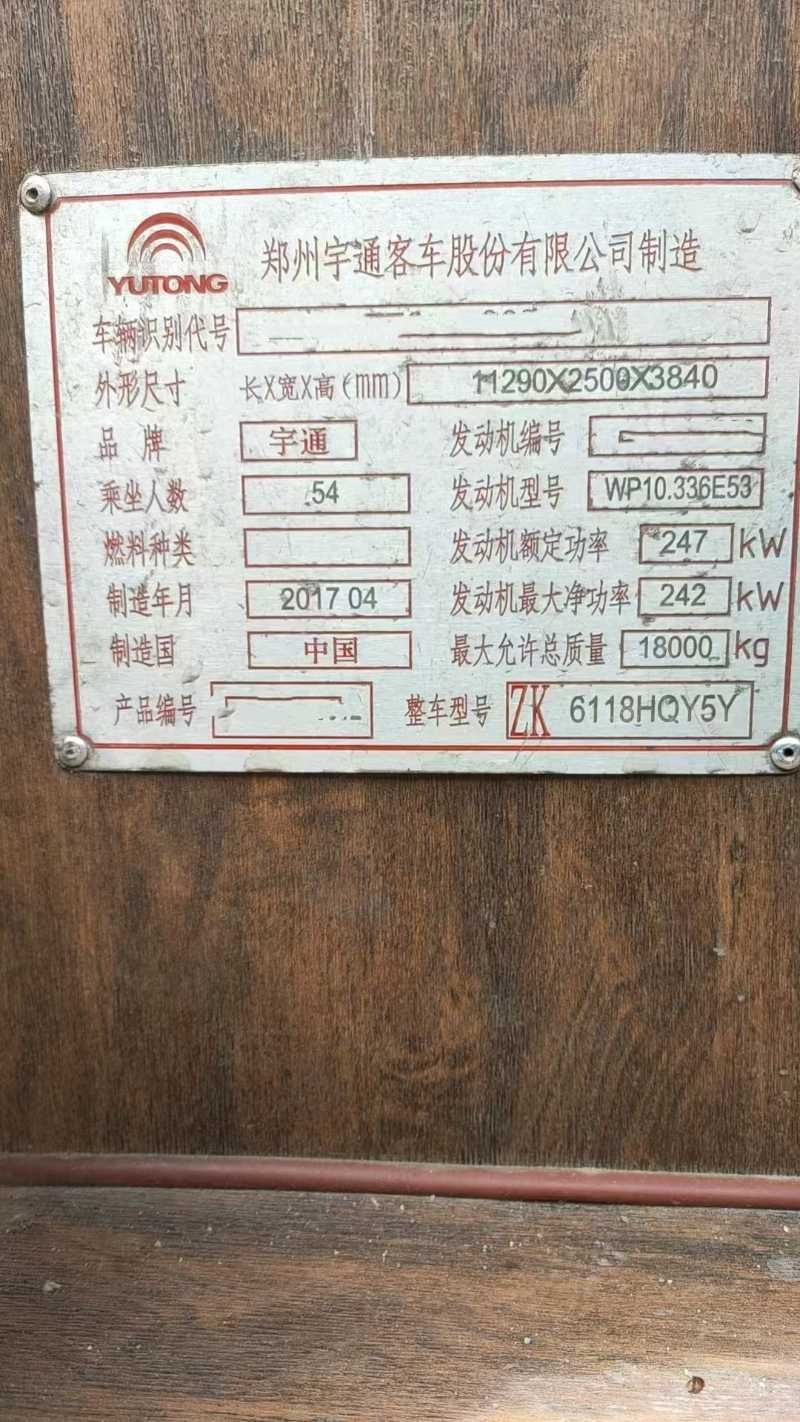 YUTONG
郑州宇通客车股份有限公司制造
车辆识别代号
外形尺寸 长X宽X高(mm) 11290X2500X3840
品牌 宇通 发动机编号
乘坐人数 54 发动机型号 WP10.336E53
燃料种类 发动机额定功率 247 kW
制造年月 2017 04 发动机最大净功率 242 kW
制造国 中国 最大允许总质量 18000 kg
产品编号 整车型号 ZK 6118HQY5Y